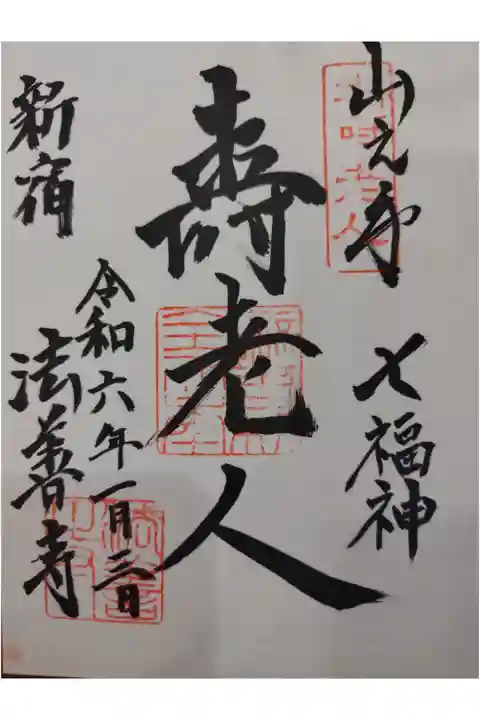 山之手七福神
壽老人
令和六年一月三日
新宿法善寺